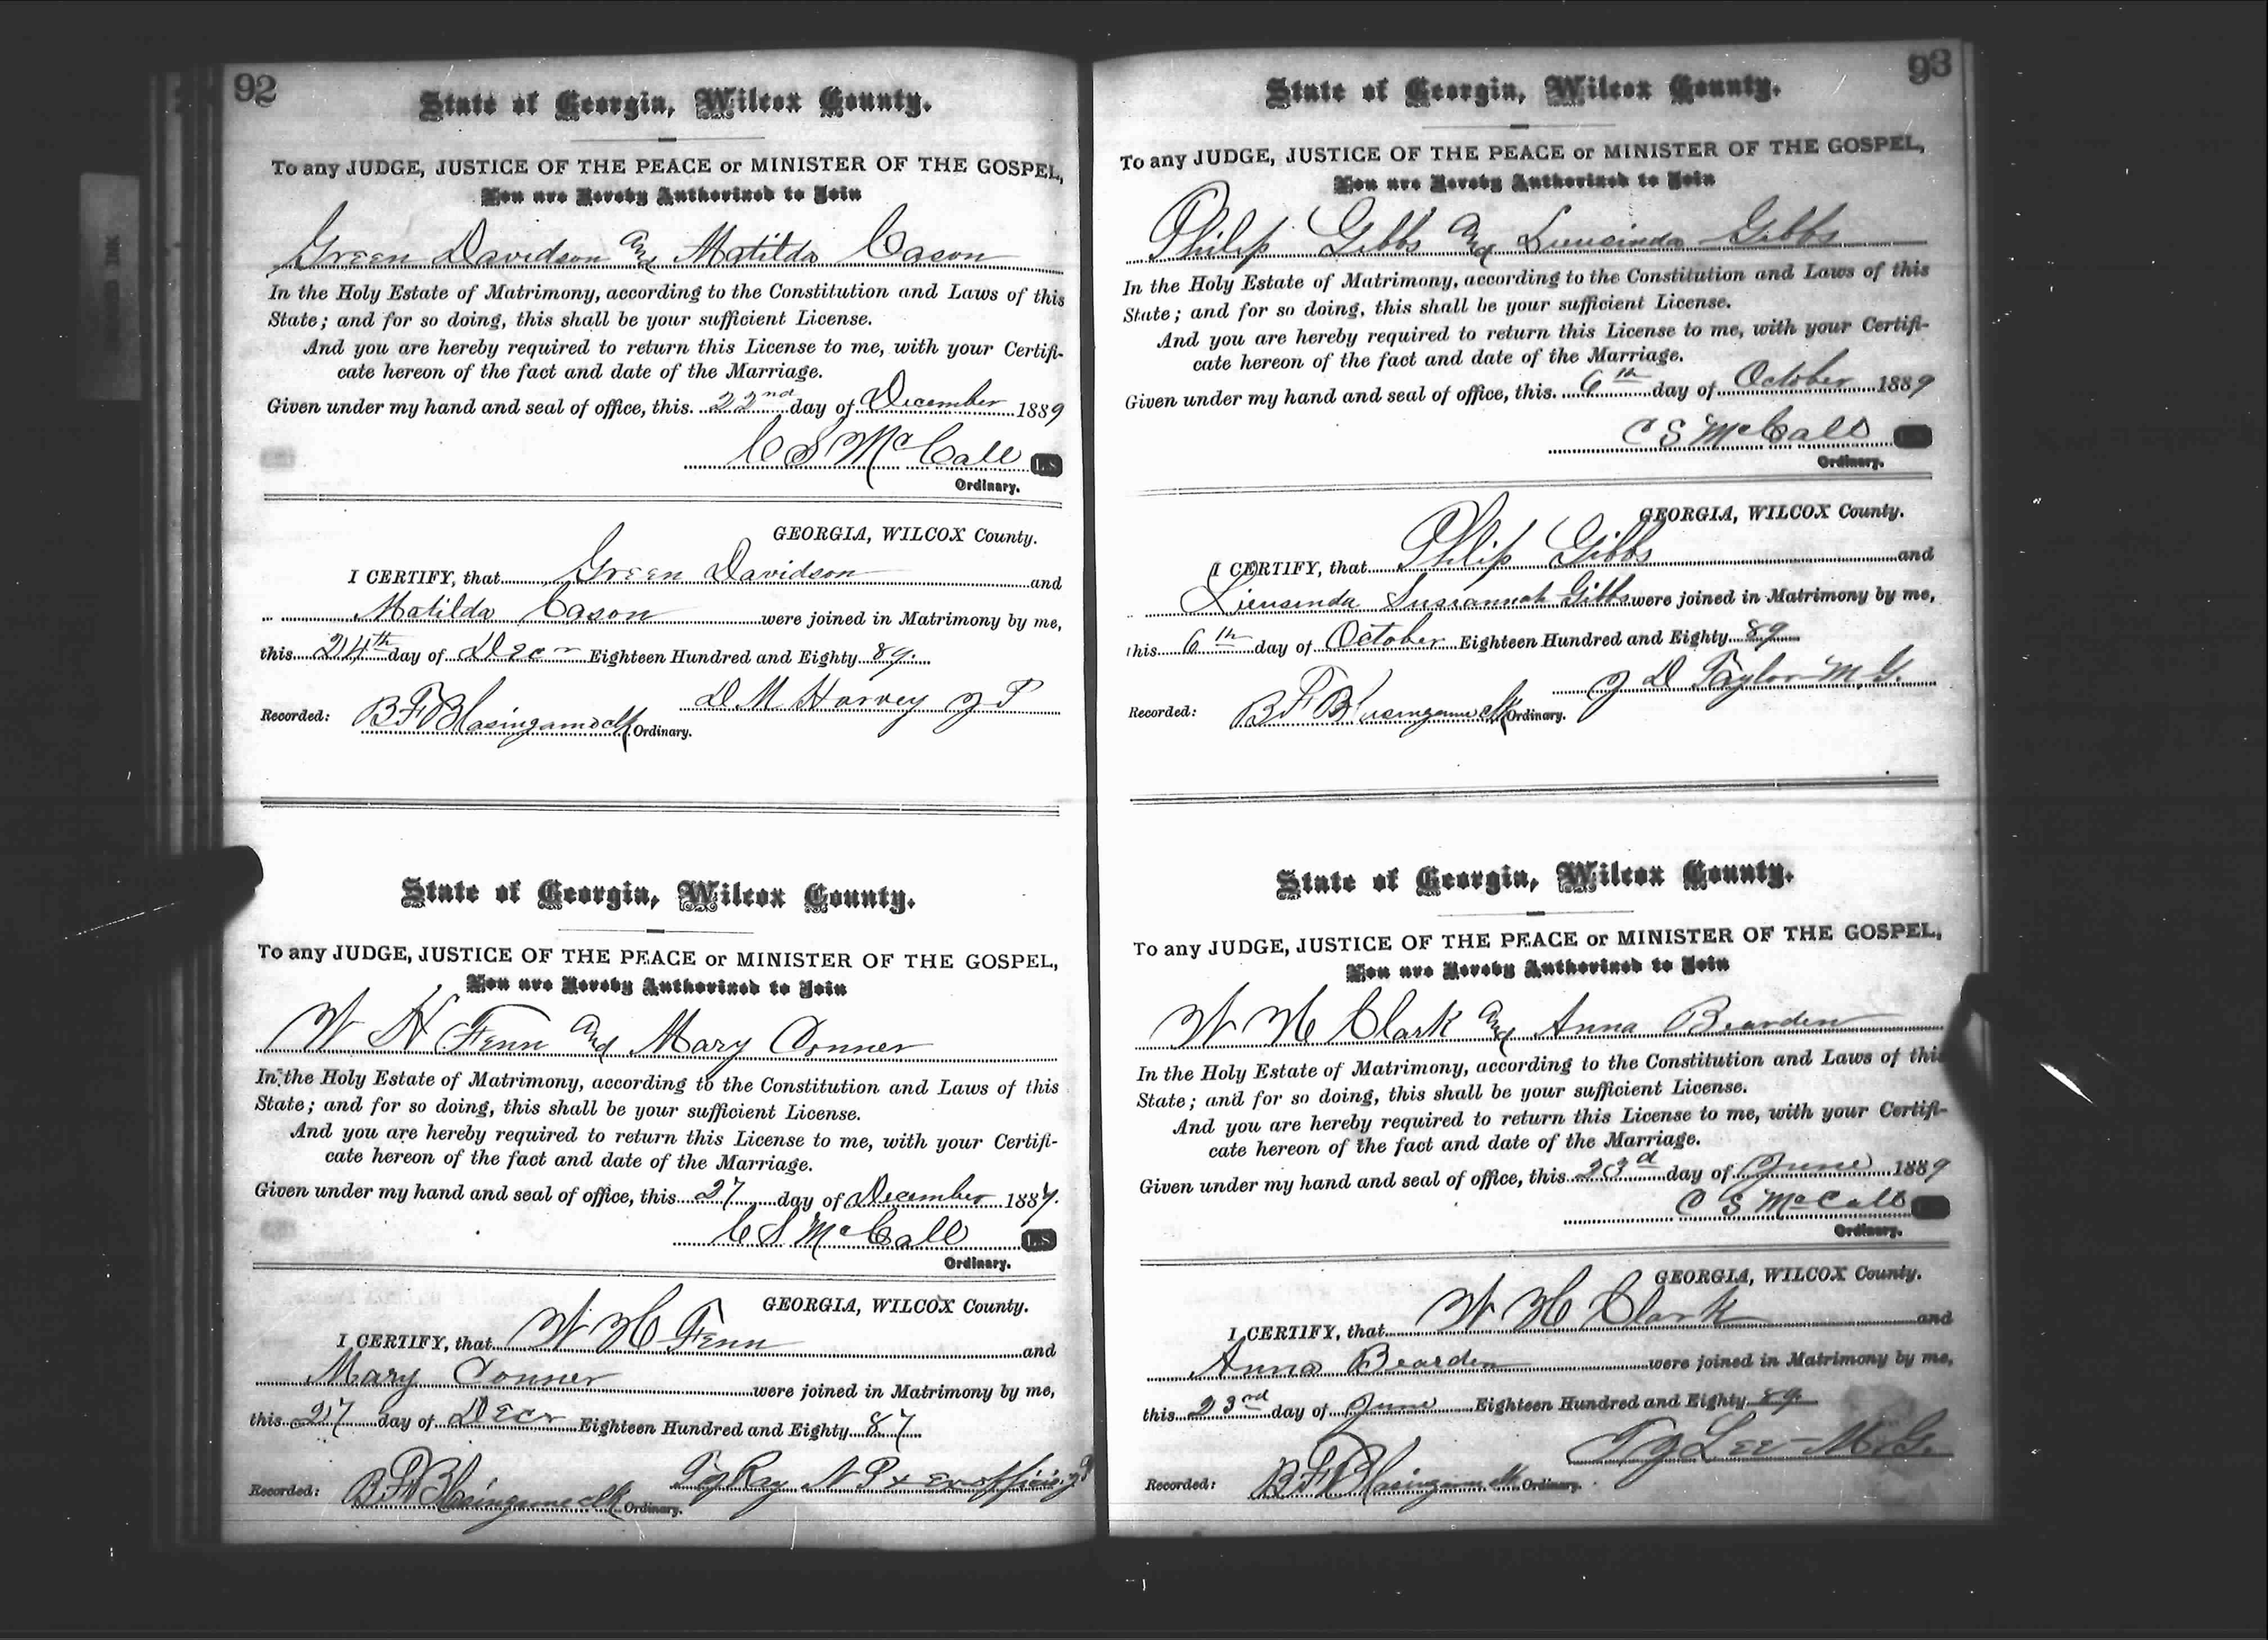 92
State of Georgia, Wilcox County.
To any JUDGE, JUSTICE OF THE PEACE or MINISTER OF THE GOSPEL,
You are Hereby Authorized to Join
Green Davidson and Matilda Cason
In the Holy Estate of Matrimony, according to the Constitution and Laws of this
State; and for so doing, this shall be your sufficient License.
And you are hereby required to return this License to me, with your Certifi-
cate hereon of the fact and date of the Marriage.
Given under my hand and seal of office, this 22nd day of December 1889
C S McCall L.S.
Ordinary.
GEORGIA, WILCOX County.
I CERTIFY, that Green Davidson and
Matilda Cason were joined in Matrimony by me,
this 24th day of Decr Eighteen Hundred and Eighty 89.
D M Harvey J P
Recorded: B F Blasingame clk Ordinary.
State of Georgia, Wilcox County.
To any JUDGE, JUSTICE OF THE PEACE or MINISTER OF THE GOSPEL,
You are Hereby Authorized to Join
W H Fenn and Mary Conner
In the Holy Estate of Matrimony, according to the Constitution and Laws of this
State; and for so doing, this shall be your sufficient License.
And you are hereby required to return this License to me, with your Certifi-
cate hereon of the fact and date of the Marriage.
Given under my hand and seal of office, this 27 day of December 1887.
C S McCall L.S.
Ordinary.
GEORGIA, WILCOX County.
I CERTIFY, that W H Fenn and
Mary Conner were joined in Matrimony by me,
this 27 day of Decr Eighteen Hundred and Eighty 87
Ray N P & Ex officio J P
Recorded: B F Blasingame clk Ordinary.
93
State of Georgia, Wilcox County.
To any JUDGE, JUSTICE OF THE PEACE or MINISTER OF THE GOSPEL,
You are Hereby Authorized to Join
Philip Gibbs and Gibbs
In the Holy Estate of Matrimony, according to the Constitution and Laws of this
State; and for so doing, this shall be your sufficient License.
And you are hereby required to return this License to me, with your Certifi-
cate hereon of the fact and date of the Marriage.
Given under my hand and seal of office, this 6th day of October 1889
C S McCall
Ordinary.
GEORGIA, WILCOX County.
I CERTIFY, that Philip Gibbs and
Susannah Gibbs were joined in Matrimony by me,
this 6th day of October Eighteen Hundred and Eighty 89
J D Taylor M. G.
Recorded: B F Blasingame clk Ordinary.
State of Georgia, Wilcox County.
To any JUDGE, JUSTICE OF THE PEACE or MINISTER OF THE GOSPEL,
You are Hereby Authorized to Join
W H Clark and Anna Bearden
In the Holy Estate of Matrimony, according to the Constitution and Laws of this
State; and for so doing, this shall be your sufficient License.
And you are hereby required to return this License to me, with your Certifi-
cate hereon of the fact and date of the Marriage.
Given under my hand and seal of office, this 23d day of June 1889
C S McCall
Ordinary.
GEORGIA, WILCOX County.
I CERTIFY, that W H Clark and
Anna Bearden were joined in Matrimony by me,
this 23rd day of June Eighteen Hundred and Eighty 89.
T J Lee M. G.
Recorded: B F Blasingame clk Ordinary.